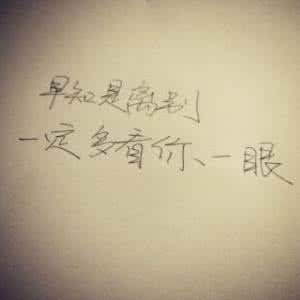 早知是离别
一定多看你、一眼